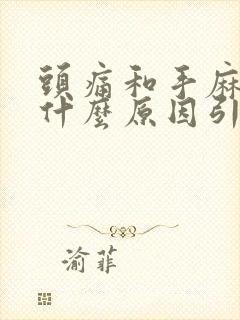 頭痛和手麻
什麼原因引
渝菲